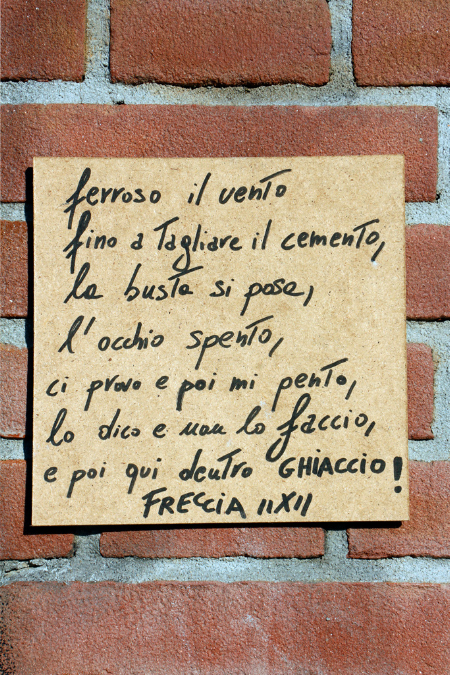 ferroso il vento
fino a tagliare il cemento,
la busta si posa,
l'occhio spento,
ci provo e poi mi pento,
lo dico e non lo faccio,
e poi qui dentro GHIACCIO!
FRECCIA IIXII